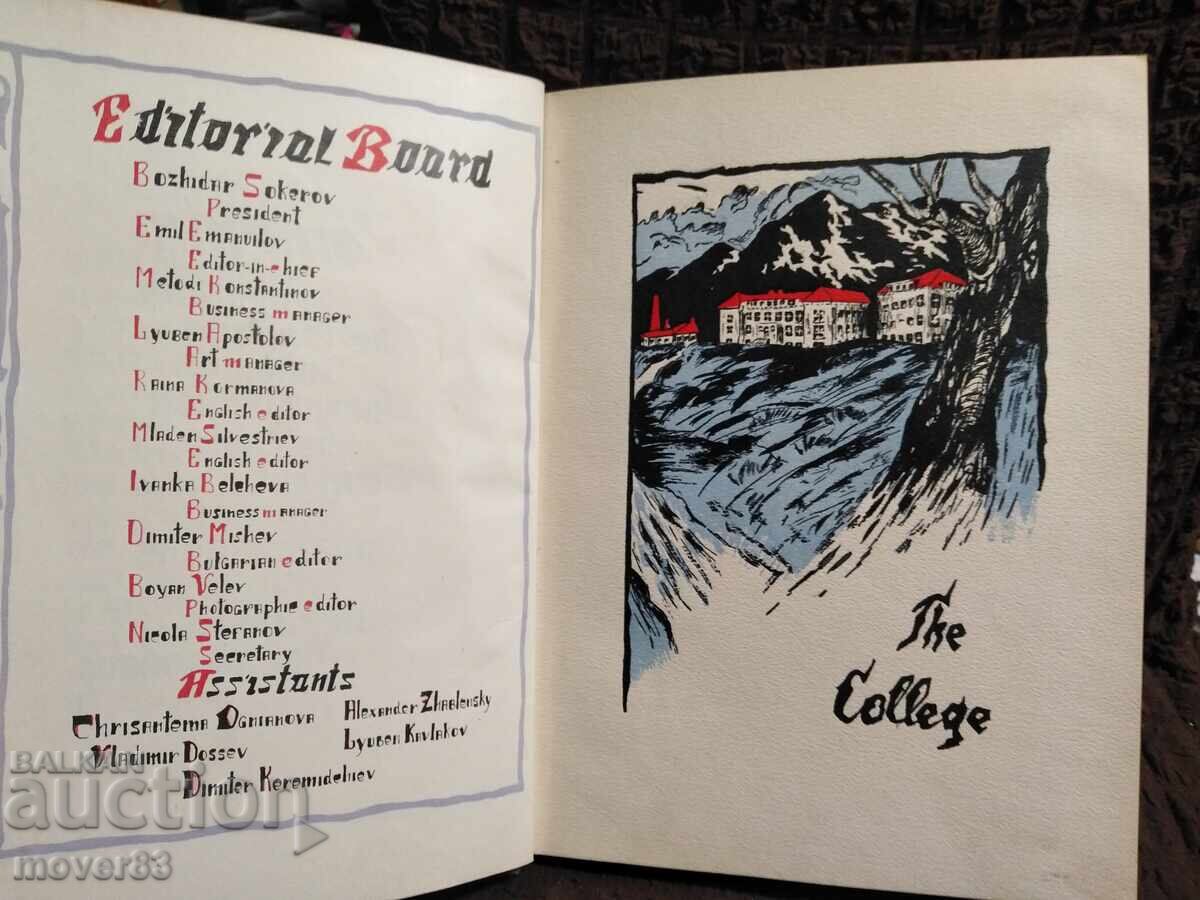 Editorial Board
Bozhidar Sokerov
President
Emil Emanuilov
Editor-in-chief
Metodi Konstantinov
Business manager
Lyuben Apostolov
Art manager
Raina Kormanova
English editor
Mladen Silvestriev
English editor
Ivanka Belcheva
Business manager
Dimiter Mishev
Bulgarian editor
Boyan Velev
Photographic editor
Nicola Stefanov
Secretary
Assistants
Chrisantema Ognianova
Alexander Zhablensky
Vladimir Dossev
Lyuben Kavlakov
Dimiter Keremidchiev
The
College
BALKAN
auction
mover83